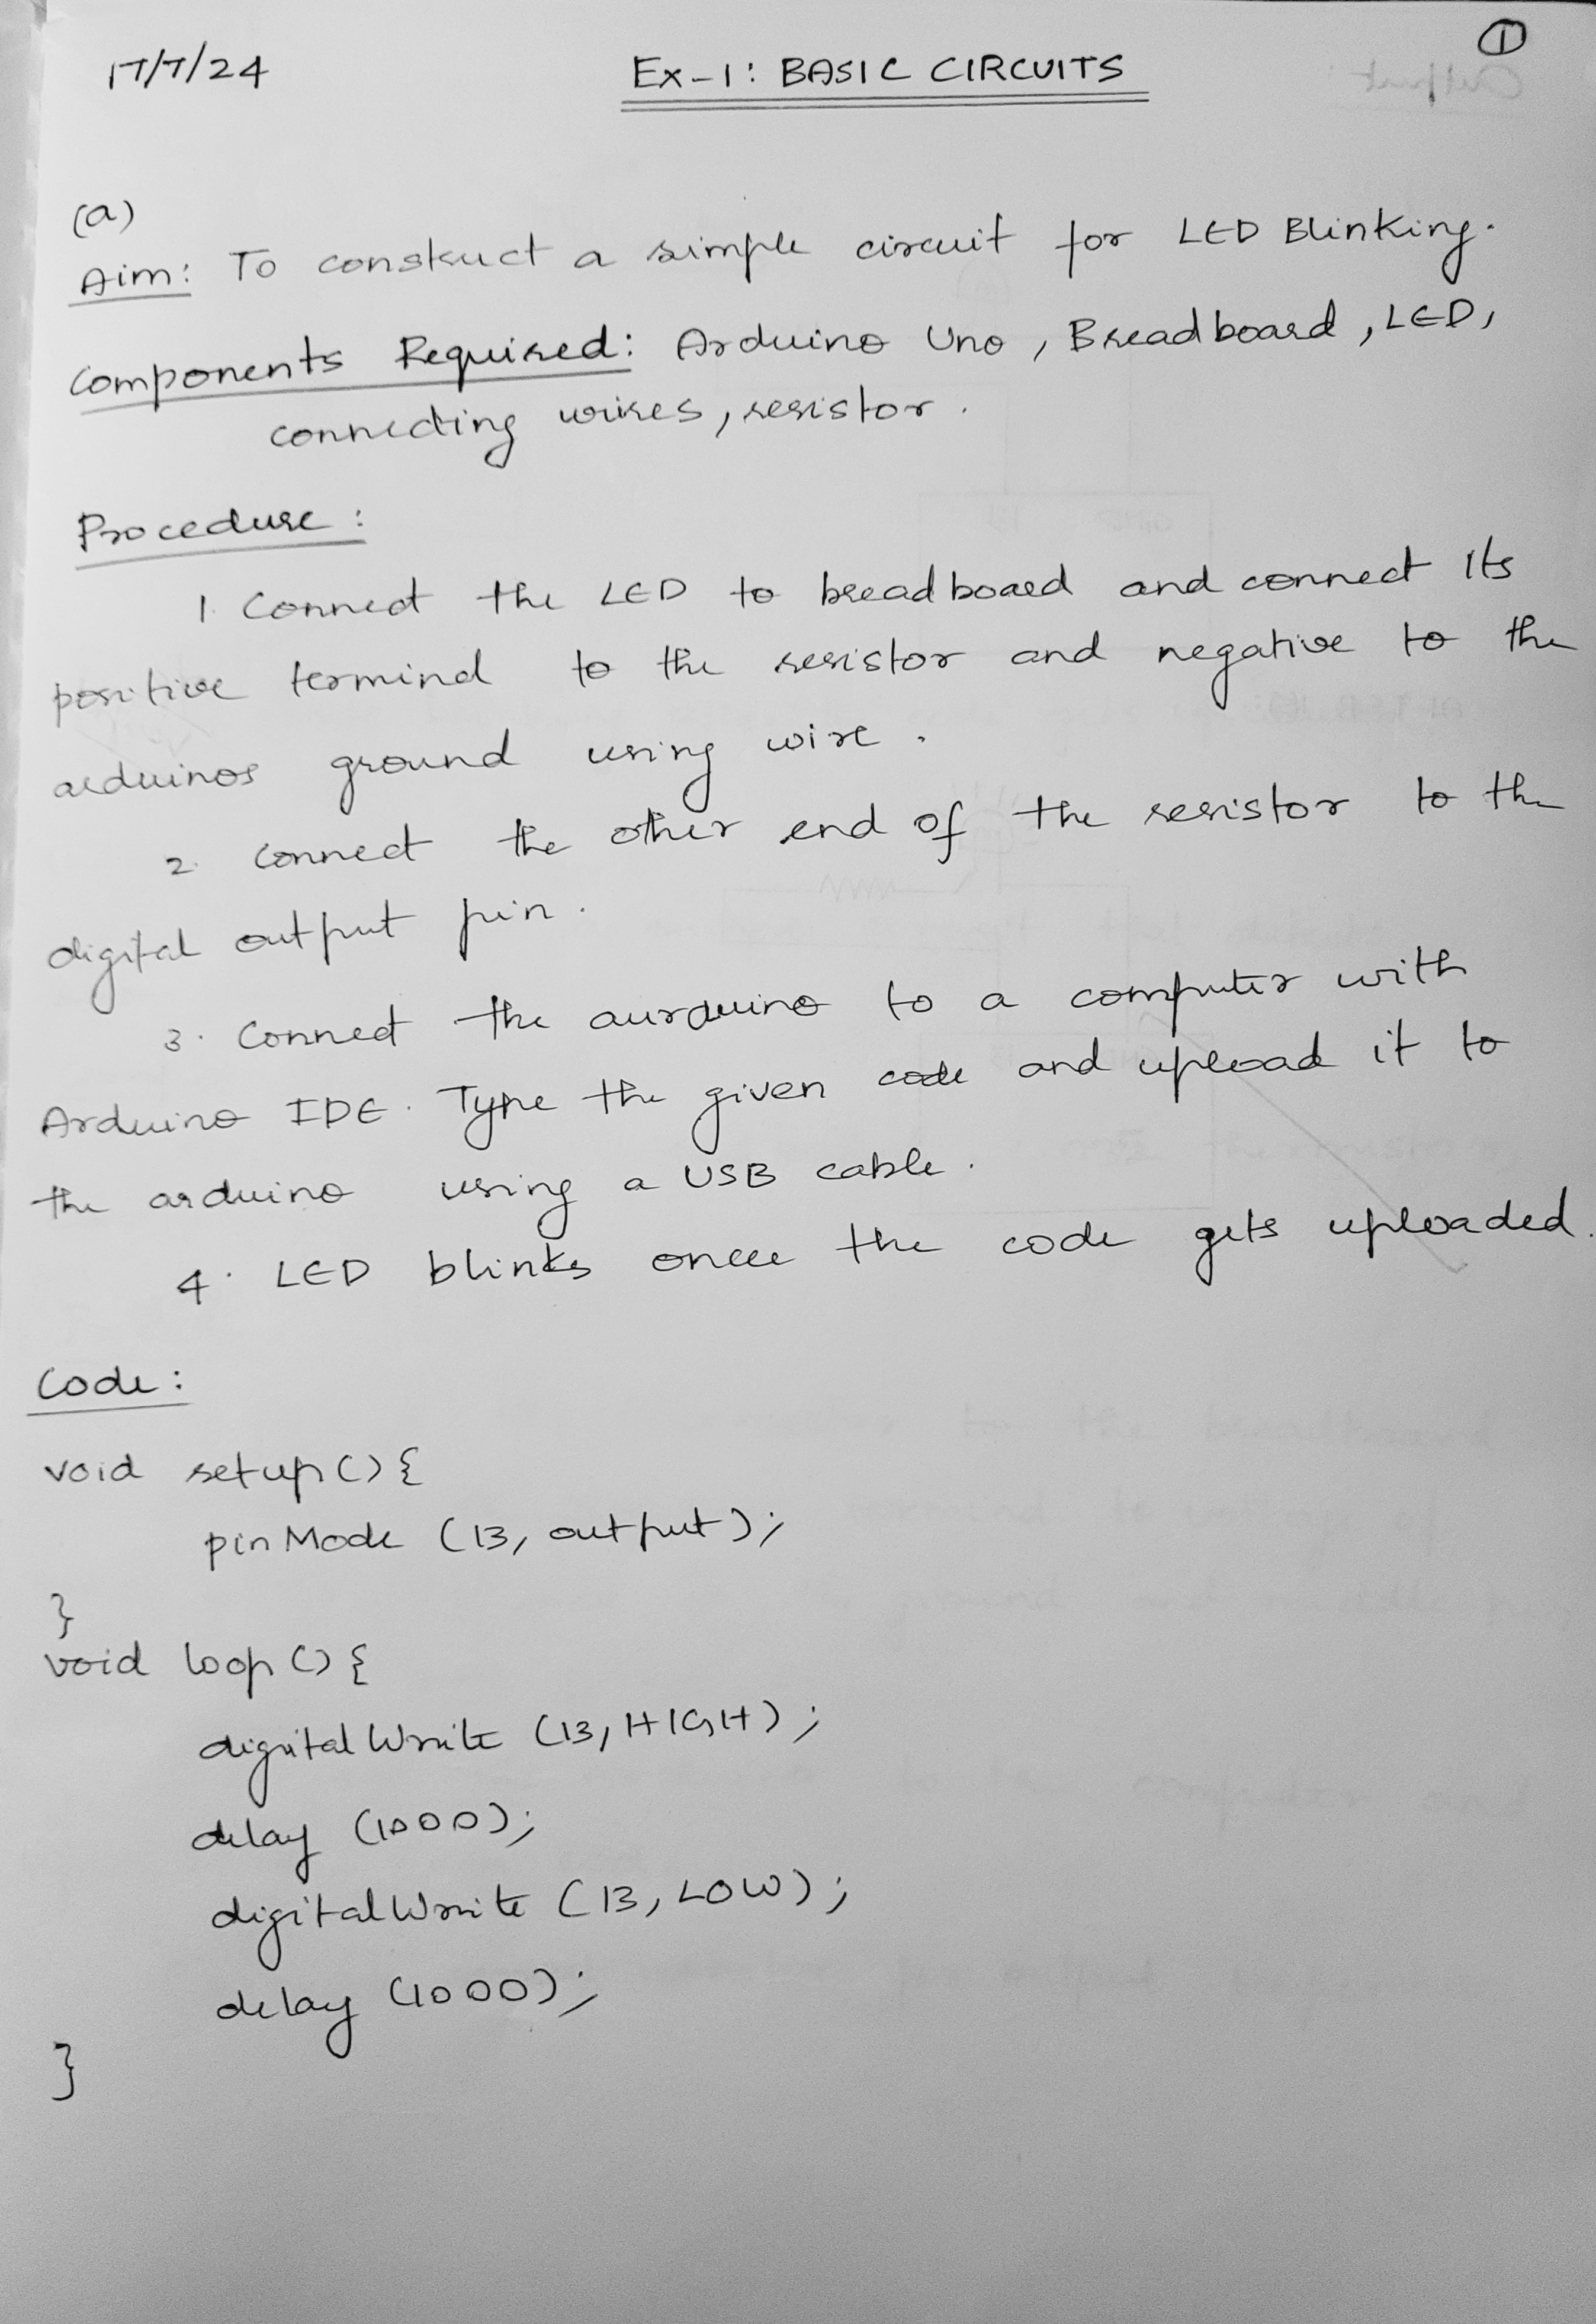 17/7/24 Ex-1: BASIC CIRCUITS 1
(a)
Aim: To construct a simple circuit for LED Blinking.
Components Required: Arduino Uno, Breadboard, LED,
connecting wires, resistor.
Procedure:
1. Connect the LED to breadboard and connect its
positive termind to the resistor and negative to the
arduinos ground using wire.
2. Connect the other end of the resistor to the
digital output pin.
3. Connect the aurduino to a computer with
Arduino IDE. Type the given code and upload it to
the arduino using a USB cable.
4. LED blinks once the code gets uploaded.
Code:
void setup() {
pinMode (13, output);
}
void loop() {
digitalWrite (13, HIGH);
delay (1000);
digitalWrite (13, LOW);
delay (1000);
}